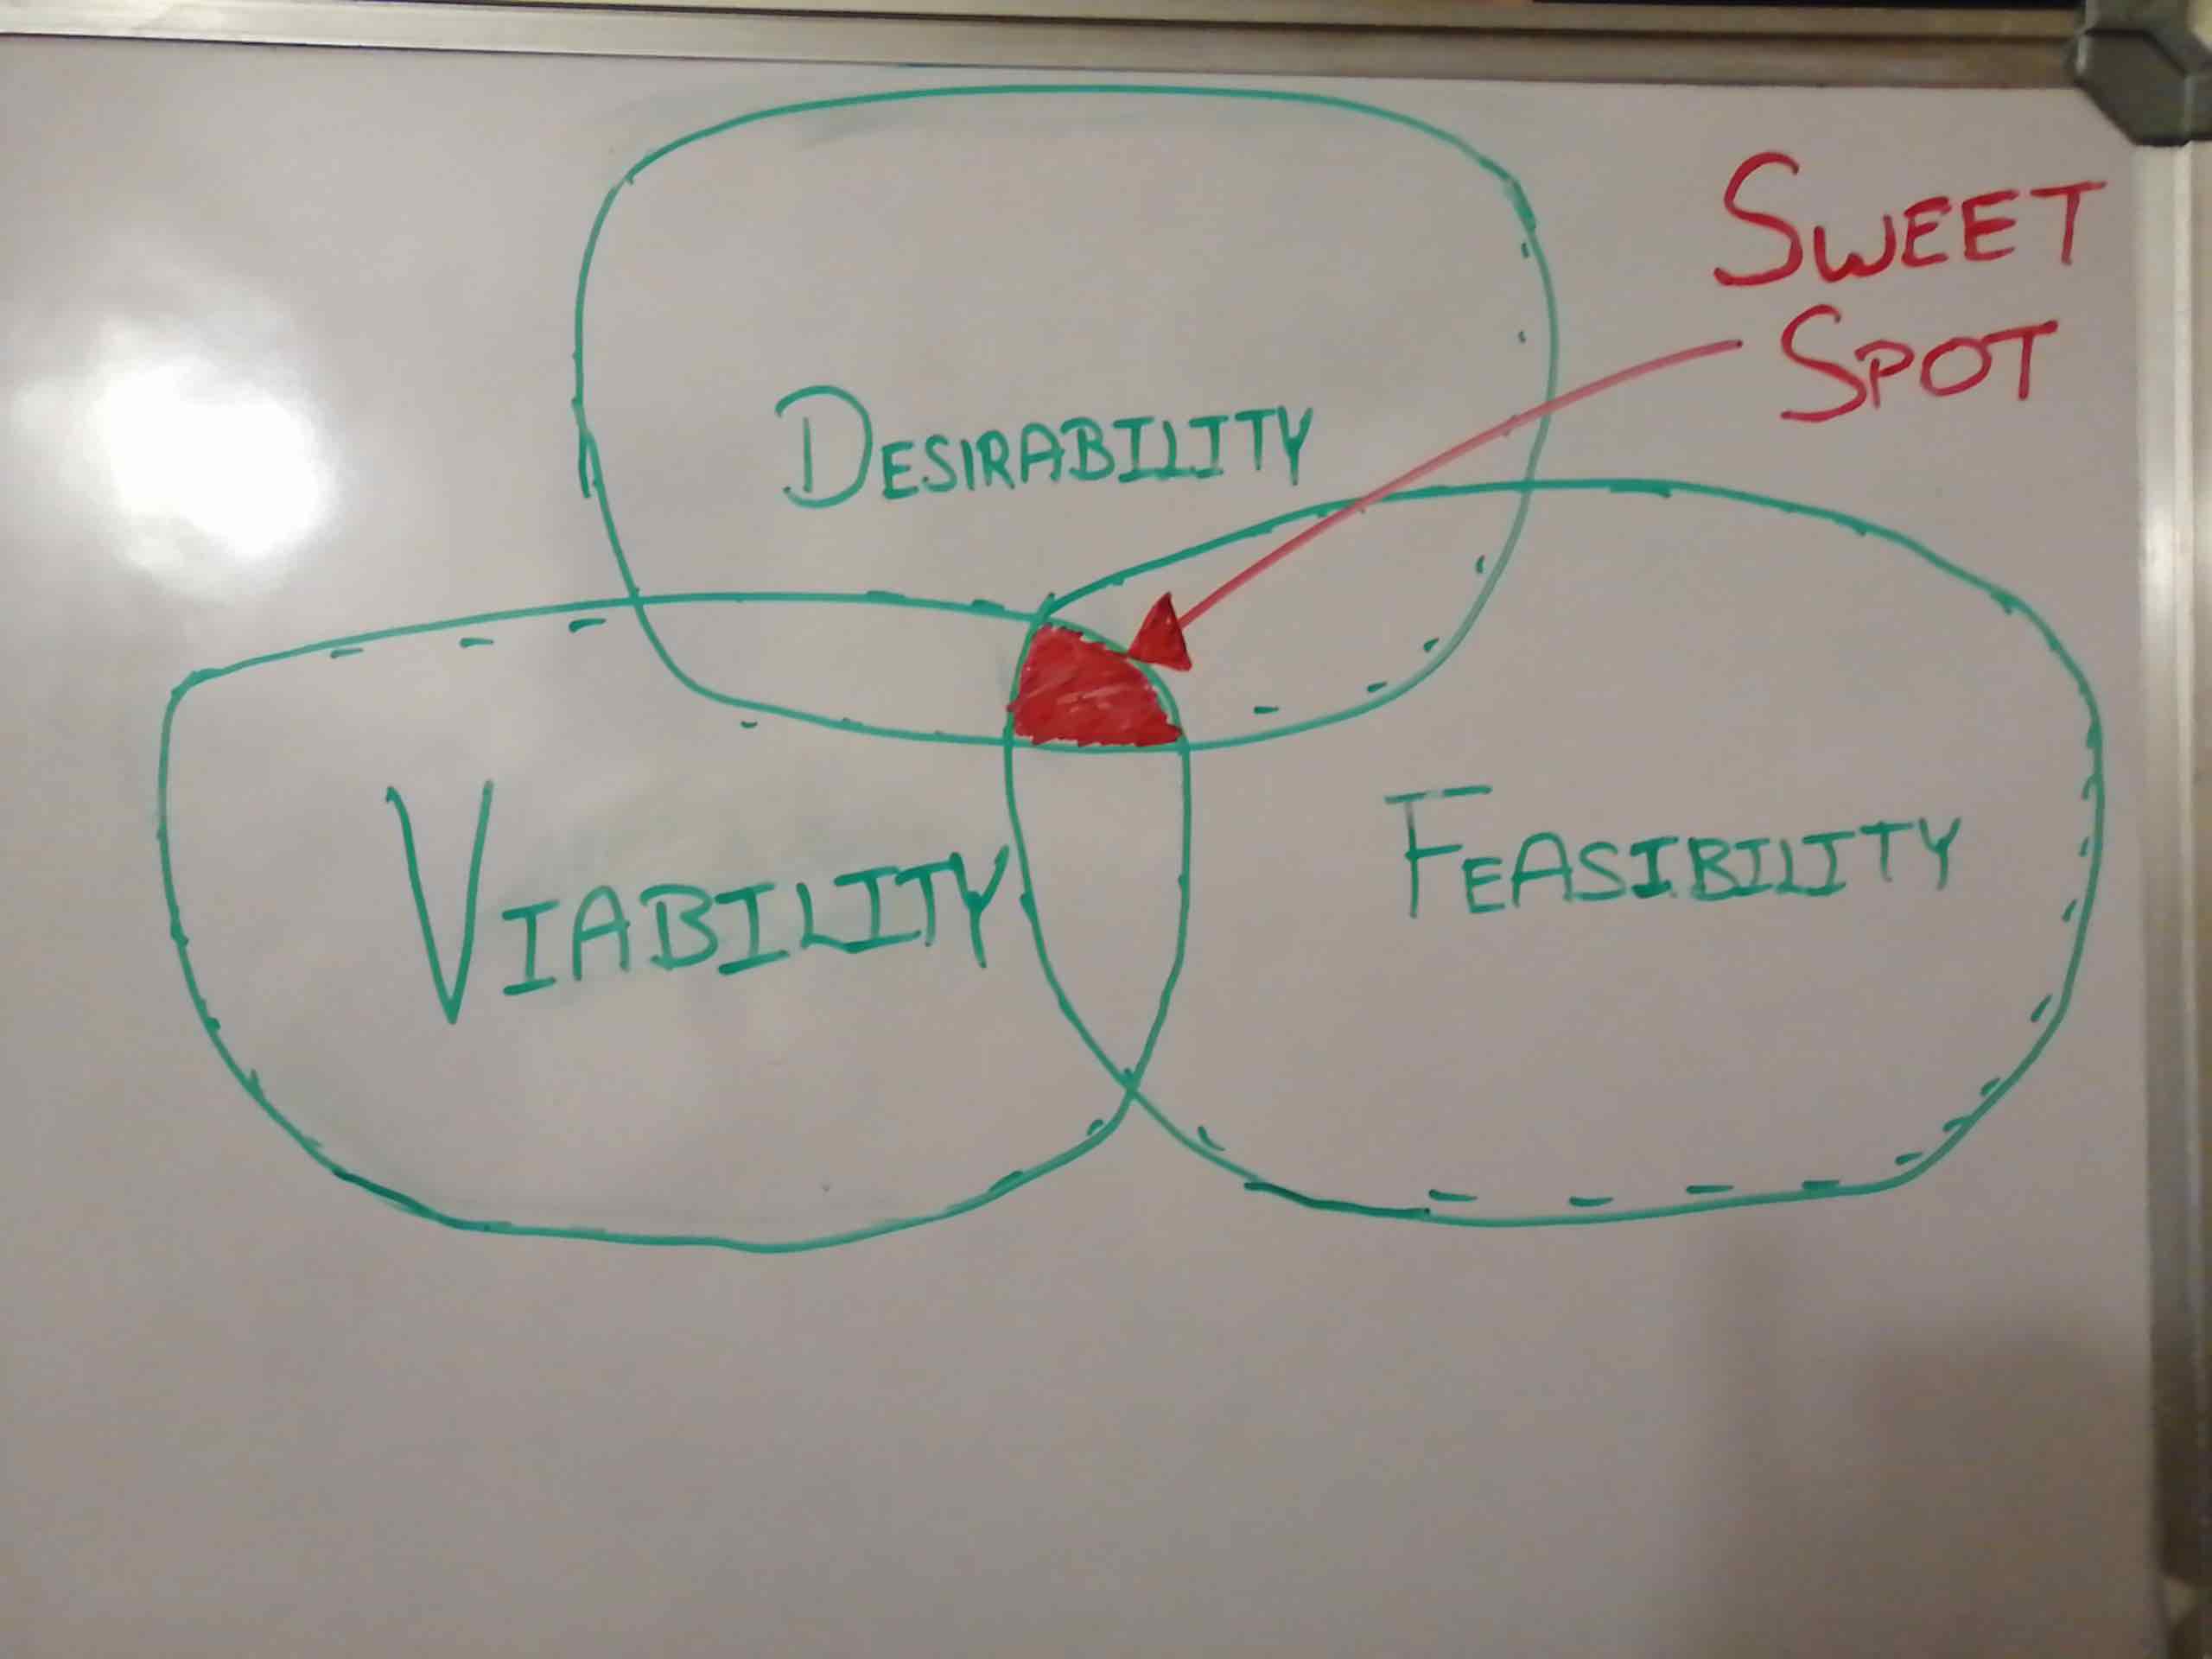 SWEET
SPOT
DESIRABILITY
VIABILITY
FEASIBILITY